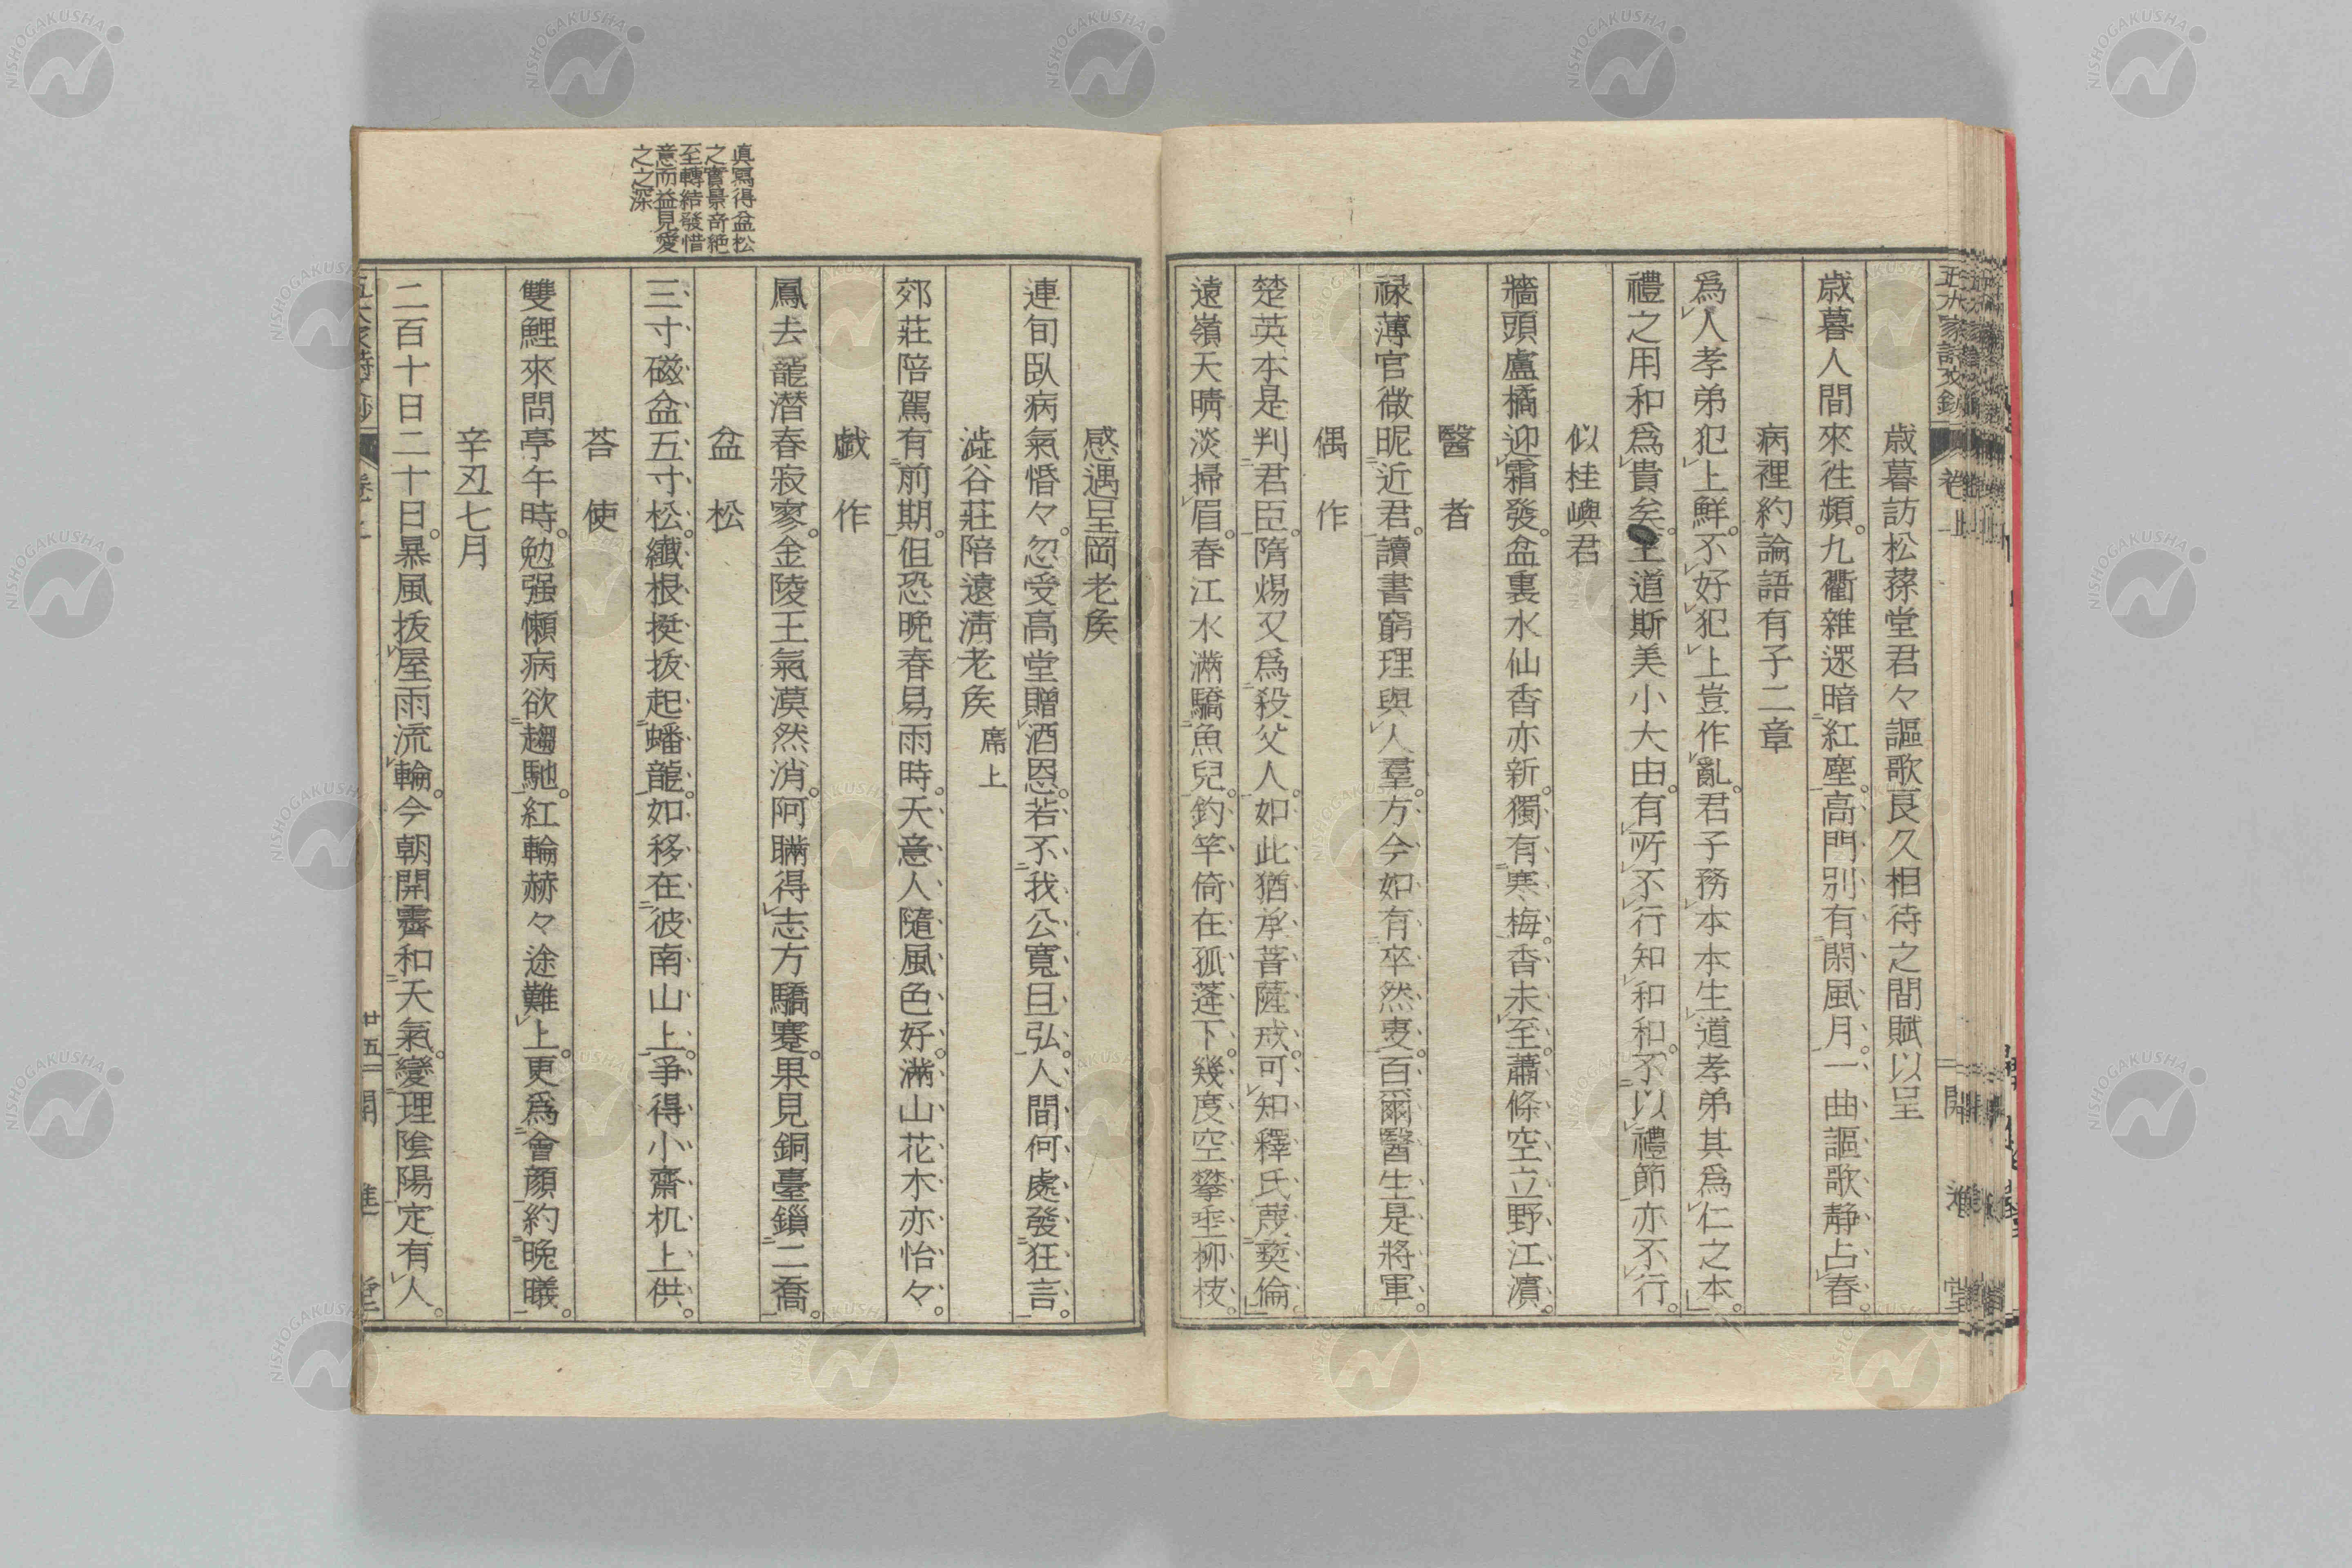 歳暮訪松蓀堂君々謳歌良久相待之間賦以呈
歳暮人間來徃頻九衢雜遝暗紅塵高門別有閑風月一曲謳歌靜占春
病裡約論語有子二章
爲人孝弟犯上鮮不好犯上豈作亂君子務本本生道孝弟其爲仁之本
禮之用和爲貴矣王道斯美小大由有所不行知和和不以禮節亦不行
似桂嶼君
牆頭盧橘迎霜發盆裏水仙香亦新獨有寒梅香未至蕭條空立野江濱
醫者
禄薄官微昵近君讀書窮理與人羣方今如有卒然変百爾醫生是將軍
偶作
楚英本是判君臣隋煬又爲殺父人如此猶承菩薩戒可知釋氏蔑彛倫
遠嶺天晴淡掃眉春江水滿驕魚兒釣竿倚在孤蓬下幾度空攀垂柳枝
感遇呈岡老矦
連旬臥病氣惛々忽受高堂贈酒恩若不我公寛且弘人間何處發狂言
澁谷莊陪遠淸老矦席上
郊莊陪駕有前期但恐晩春易雨時天意人隨風色好滿山花木亦怡々
戯作
鳳去龍潛春寂寥金陵王氣漠然消阿瞞得志方驕蹇果見銅臺鎖二喬
盆松
三寸磁盆五寸松纖根挺抜起蟠龍如移在彼南山上爭得小齋机上供
荅使
雙鯉來問亭午時勉强懶病欲趨馳紅輪赫々途難上更爲會顏約晩曦
辛丑七月
二百十日二十日暴風抜屋雨流輪今朝開霽和天氣變理陰陽定有人
眞寫得盆松
之實景奇絶
至轉結發惜
意而益見愛
之之深